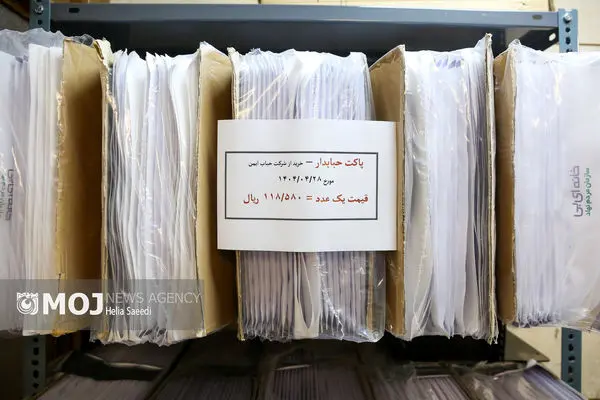 پاکت حبابدار – خرید از شرکت حباب ایمن
مورخ ۱۴۰۴/۰۴/۲۸
قیمت یک عدد = ۱۱۸/۵۸۰ ریال
خانه‌ای بی
سازمان مردم نهاد
MOJ NEWS AGENCY
Helia Saeedi